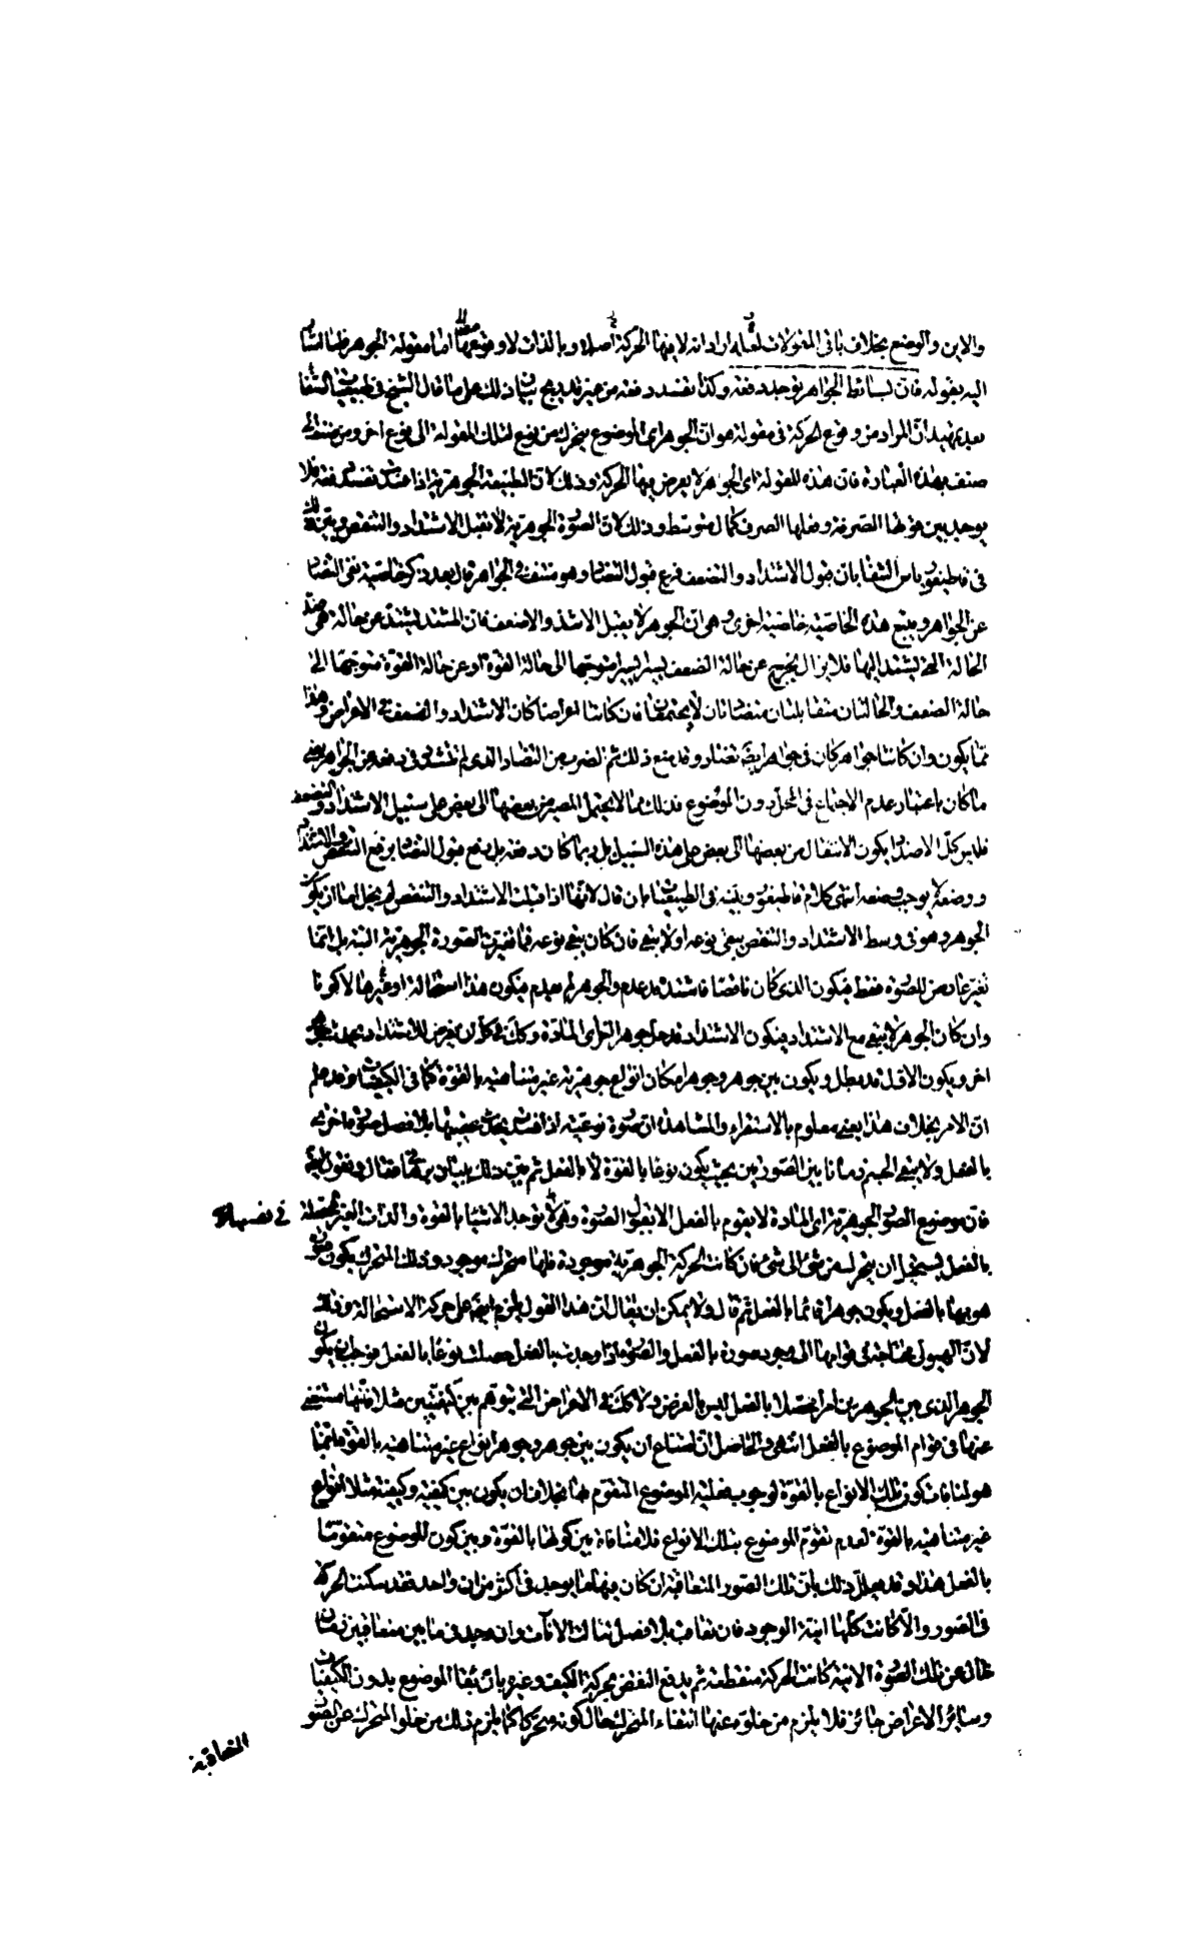 والاين والوضع بخلاف باقى المقولات لعله اراد انه لا يقع فيها الحركة اصلا وبالذات لا وقوعها اما مقولة الجوهر فلما اشار
اليه بقوله فان بسائط الجواهر توجد دفعة وكذا تفسد دفعة من غير تدريج بيان ذلك على ما قال الشيخ فى طبيعيات الشفا
بعد تمهيد ان المراد من وقوع الحركة فى مقولة هو ان الجوهر اى الموضوع يتحرك من نوع لتلك المقولة الى نوع اخر ومن صنف الى
صنف بهذه العبارة فان هذه المقولة اى الجوهر لا يعرض فيها الحركة وذلك لان الطبيعة الجوهرية اذا فسدت تفسد دفعة فلا
يوجد بين قوتها الصرفة وفعلها الصرف كمال متوسط وذلك لان الصورة الجوهرية لا تقبل الاشتداد والتنقص وبين ذلك
فى قاطيغورياس الشفا بان قبول الاشتداد والتضعف فرع قبول التضاد وهو منتف فى الجواهر قال بعد ذكر خاصية نفى التضاد
عن الجواهر ويتبع هذه الخاصية خاصية اخرى وهى ان الجوهر لا يقبل الاشد والاضعف فان المشتد يشتد عن حالة هى ضد
الحالة التى يشتد اليها فلا يزال يخرج عن حالة الضعف يسيرا يسيرا متوجها الى حالة القوة او عن حالة القوة متوجها الى
حالة الضعف والحالتان متقابلتان متضادتان لا يجتمعان فان كانتا اعراضا كان الاشتداد والضعف فى الاعراض وهذا
مما يكون وان كانتا جواهر كان فى جواهر ايضا تضاد وقد منع ذلك ثم الضرب من التضاد الذى لم نتشدد فى دفعه عن الجواهر يعنى
ما كان باعتبار عدم الاجتماع فى المحل دون الموضوع فذلك مما لا يحتمل المصير من بعضها الى بعض على سبيل الاشتداد والتضعف
فليس كل الاضداد يكون الانتقال من بعضها الى بعض على هذه السبيل بل ربما كان دفعة بل رفع قبول التضاد يرفع التنقص والاشتداد
ووضعه لا يوجب وضعه انتهى كلام قاطيغورياس وبينه فى الطبيعيات بان قال لانها اذا قبلت الاشتداد والتنقص لم يخل اما ان يكون
الجوهر وهو فى وسط الاشتداد والتنقص يبقى نوعه او لا يبقى فان كان يبقى نوعه فما تغيرت الصورة الجوهرية البتة بل انما
تغير عارض للصورة فقط فيكون الذى كان ناقصا فاشتد قد عدم والجوهر لم يعدم فيكون هذا استحالة او غيرها لا كونا
وان كان الجوهر لا يبقى مع الاشتداد فيكون الاشتداد قد جلب جوهرا اخر اى المادة وكذلك فى كل ان يفرض للاشتداد يحدث جوهر
اخر ويكون الاول قد بطل ويكون بين جوهر وجوهر امكان انواع جوهرية غير متناهية بالقوة كما فى الكيفيات وقد علم
ان الامر بخلاف هذا يعنى معلوم بالاستقراء والمشاهدة ان صورة نوعية اذا فسدت يحدث عقيبها بلا فصل صورة اخرى
بالفعل ولا يبقى الجسم زمانا بين الصورتين بحيث يكون نوعا بالقوة لا بالفعل ثم بين ذلك ببيان برهانى فقال ونقول ايضا
فان موضوع الصور الجوهرية اى المادة لا يقوم بالفعل الا بقبول الصورة وهى لا توجد الا شيئا بالقوة والذات الغير المحصلة فى نفسها
بالفعل يستحيل ان يتحرك من شئ الى شئ فان كانت الحركة الجوهرية موجودة فلها متحرك موجود وذلك المتحرك يكون له صورة
هو بها بالفعل ويكون جوهرا قائما بالفعل ثم قال ولا يمكن ان يقال ان هذا القول يلزم ايضا على حركة الاستحالة وذلك
لان الهيولى محتاجة فى قوامها الى وجود صورة بالفعل والصورة اذا وجدت بالفعل حصلت نوعا بالفعل فوجب ان يكون
الجوهر الذى بين الجوهرين امرا محصلا بالفعل ليس بالفرض ولا كذلك فى الاعراض التى يتوهم بين كيفيتين مثلا فانها مستغنى
عنها فى قوام الموضوع بالفعل انتهى والحاصل ان امتناع ان يكون بين جوهر وجوهر انواع غير متناهية بالقوة انما
هو لمنافاة كون تلك الانواع بالقوة لوجوب فعلية الموضوع المتقوم بها بخلاف ان يكون بين كيفية وكيفية مثلا انواع
غير متناهية بالقوة لعدم تقوم الموضوع بتلك الانواع فلا منافاة بين كونها بالقوة وبين كون الموضوع متقوما
بالفعل هذا وقد يعلل ذلك بان تلك الصور المتعاقبة ان كان فيها ما يوجد فى اكثر من ان واحد فقد سكنت الحركة
فى الصور والا كانت كلها انية الوجود فان تعاقب بلا فصل تتالت الانات وان وجد فى ما بين متعاقبين زمان
خال عن تلك الصورة الانية كانت الحركة منقطعة ثم يدفع النقض بحركة الكيف وغيره بان بقاء الموضوع بدون الكيفيات
وسائر الاعراض جائز فلا يلزم من خلوه عنها انتفاء المتحرك حال كونه متحركا كما يلزم ذلك من خلو المتحرك عن الصور
المتعاقبة